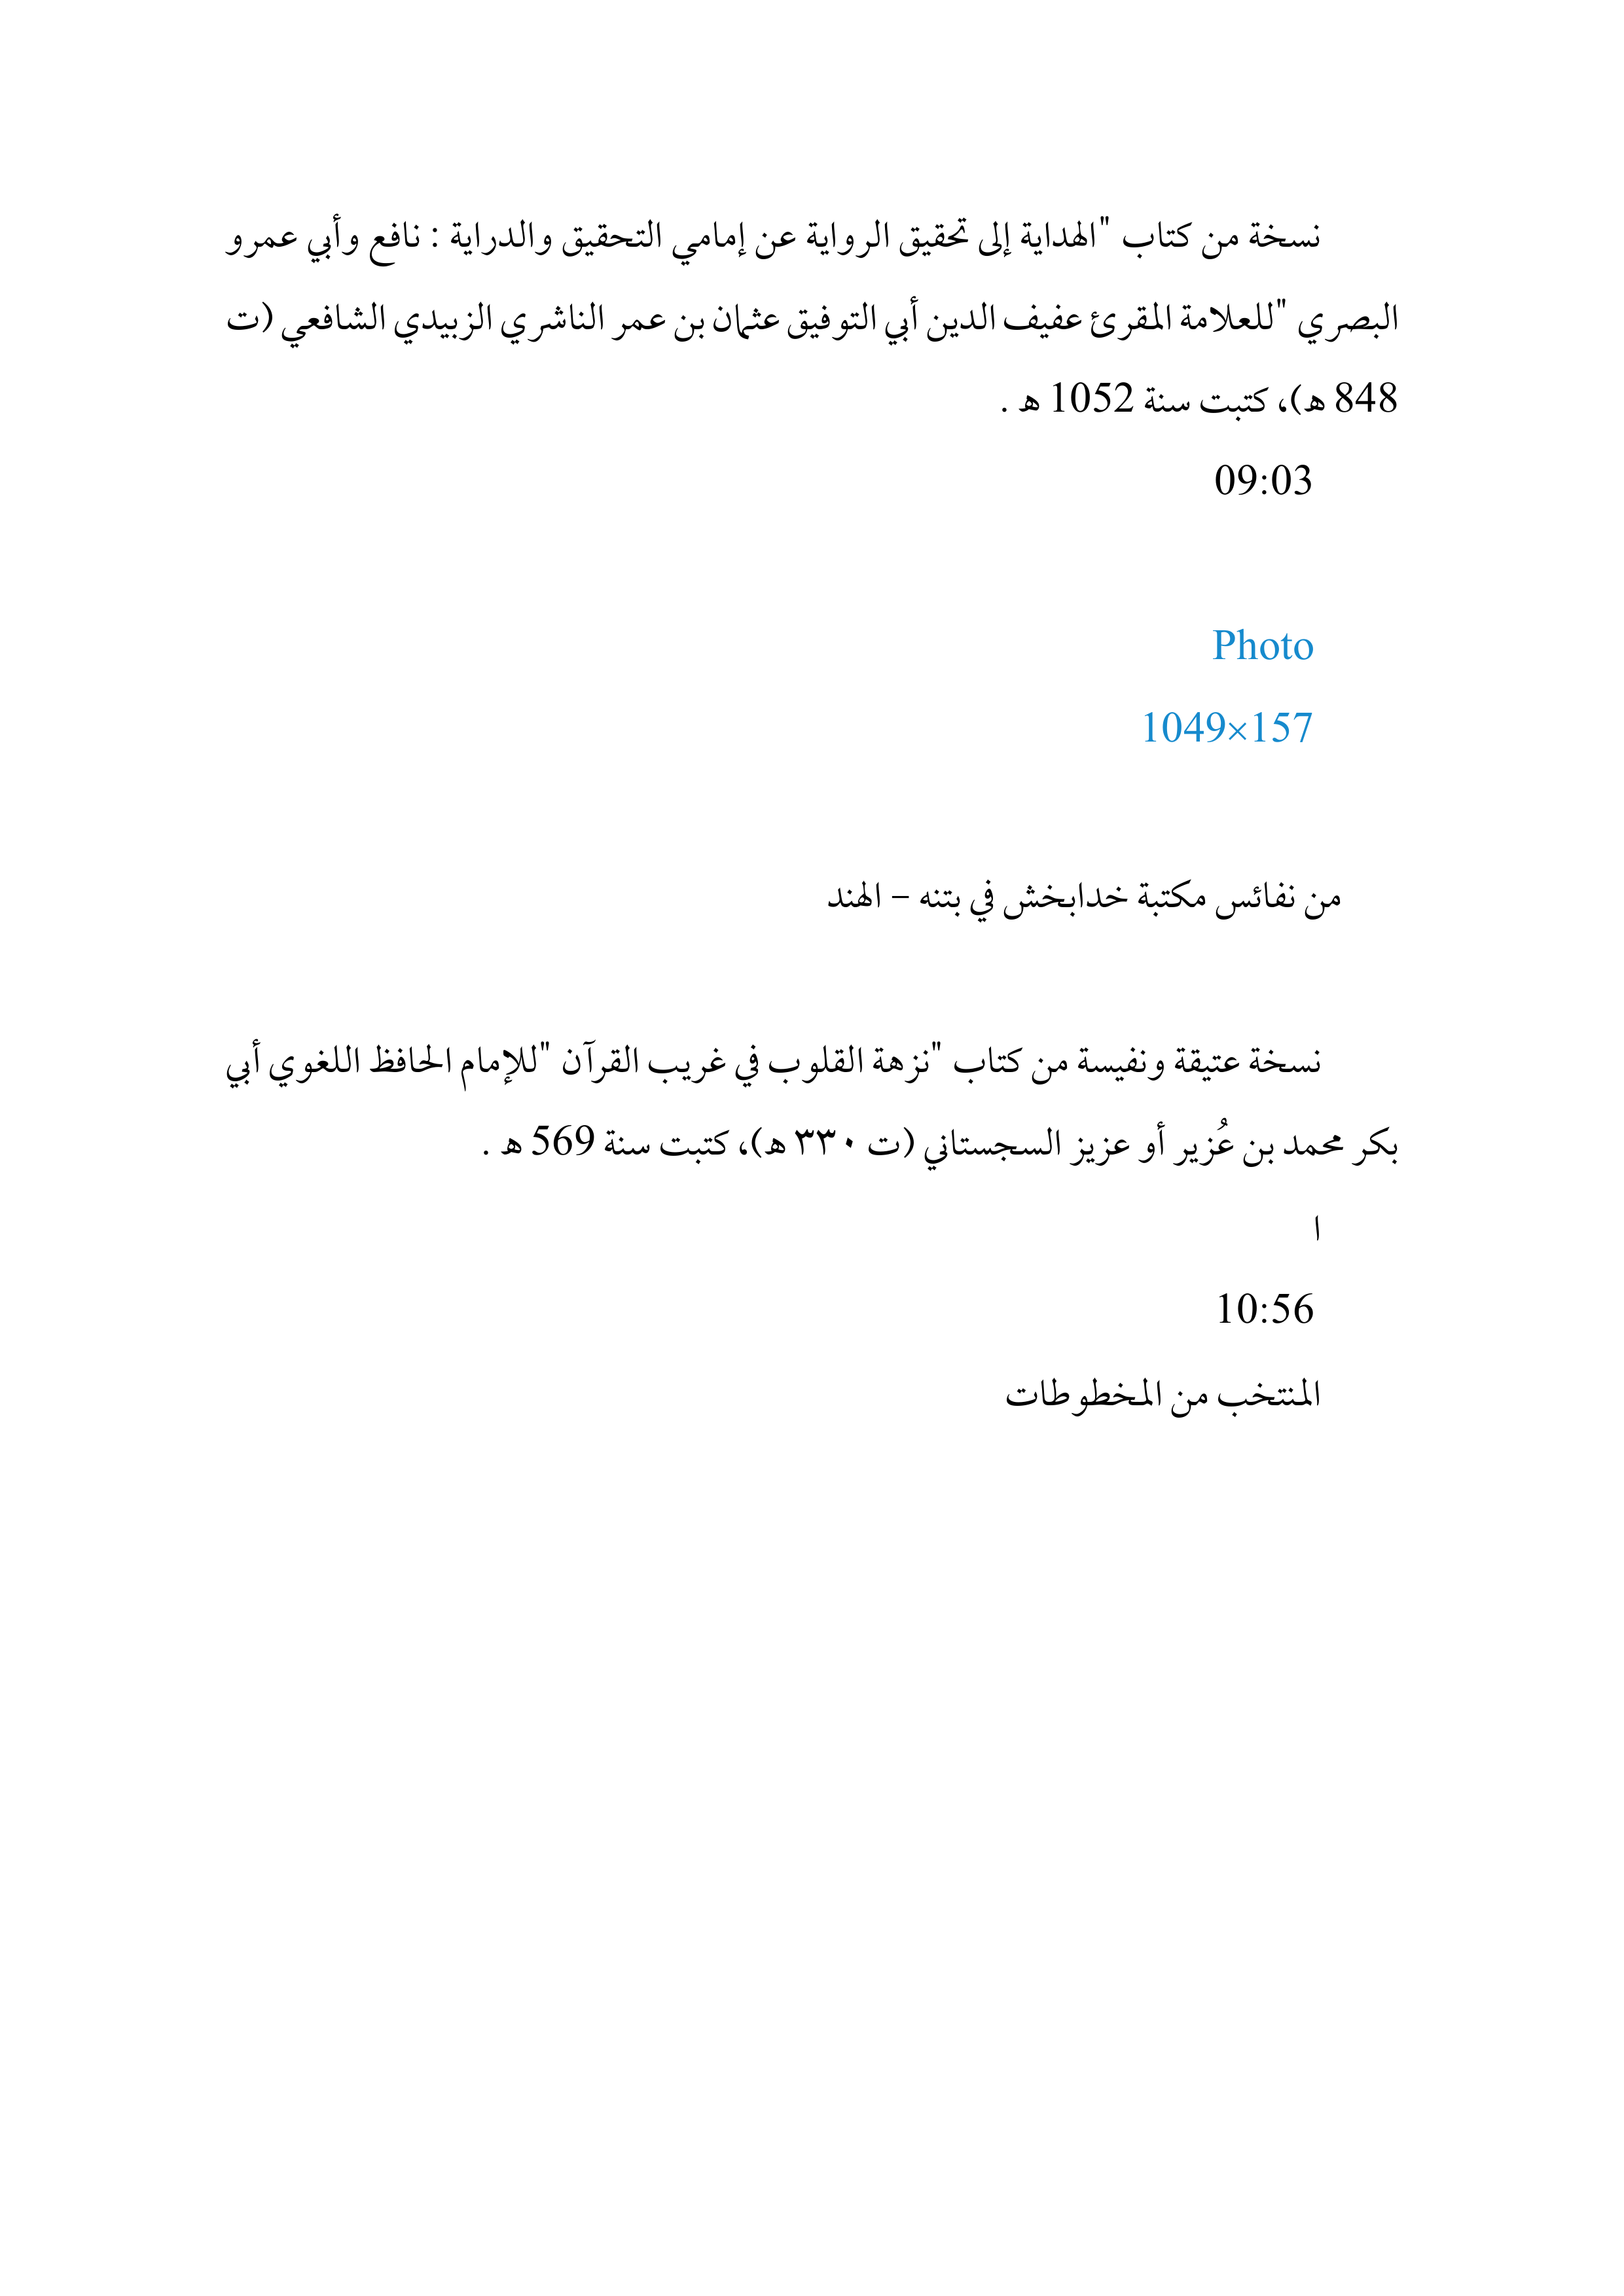 نسخة من كتاب "الهداية إلى تحقيق الرواية عن إمامي التحقيق والدراية : نافع وأبي عمرو
البصري "للعلامة المقرئ عفيف الدين أبي التوفيق عثمان بن عمر الناشري الزبيدي الشافعي (ت
848 ه)، كتبت سنة 1052 ه .
09:03
Photo
1049×157
من نفائس مكتبة خدابخش في بتنه – الهند
نسخة عتيقة ونفيسة من كتاب "نزهة القلوب في غريب القرآن "للإمام الحافظ اللغوي أبي
بكر محمد بن عُزير أو عزيز السجستاني (ت ٣٣٠ ه)، كتبت سنة 569 ه .
ا
10:56
المنتخب من المخطوطات